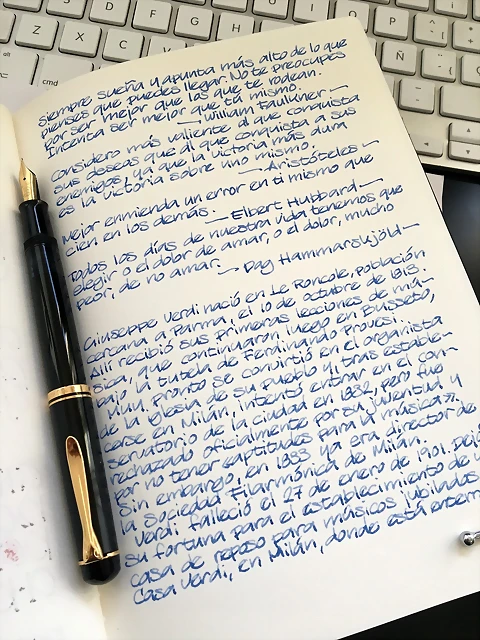 siempre sueña y apunta más alto de lo que
pienses que puedes llegar. No te preocupes
por ser mejor que las que te rodean.
Intenta ser mejor que tú mismo.
— William Faulkner —
Considero más valiente al que conquista
sus deseos que al que conquista a sus
enemigos, ya que la victoria más dura
es la victoria sobre uno mismo.
— Aristóteles —
Mejor enmienda un error en ti mismo que
cien en los demás. — Elbert Hubbard —
Todos los días de nuestra vida tenemos que
elegir o el dolor de amar, o el dolor, mucho
peor, de no amar. — Dag Hammarskjöld —
Giuseppe Verdi nació en Le Roncole, población
cercana a Parma, el 10 de octubre de 1813.
Allí recibió sus primeras lecciones de mú-
sica, que continuaron luego en Busseto,
bajo la tutela de Ferdinando Provesi.
Muy pronto se convirtió en el organista
de la iglesia de su pueblo y, tras estable-
cerse en Milán, intentó entrar en el con-
servatorio de la ciudad en 1832, pero fue
rechazado oficialmente por su juventud y
por no tener «aptitudes para la música».
Sin embargo, en 1833 ya era director de
la Sociedad Filarmónica de Milán.
Verdi falleció el 27 de enero de 1901. Dejó
su fortuna para el establecimiento de
casa de reposo para músicos jubilados
Casa Verdi, en Milán, donde está
cmd
alt
Z
X
C
V
B
N
D
F
G
H
J
K
Ñ